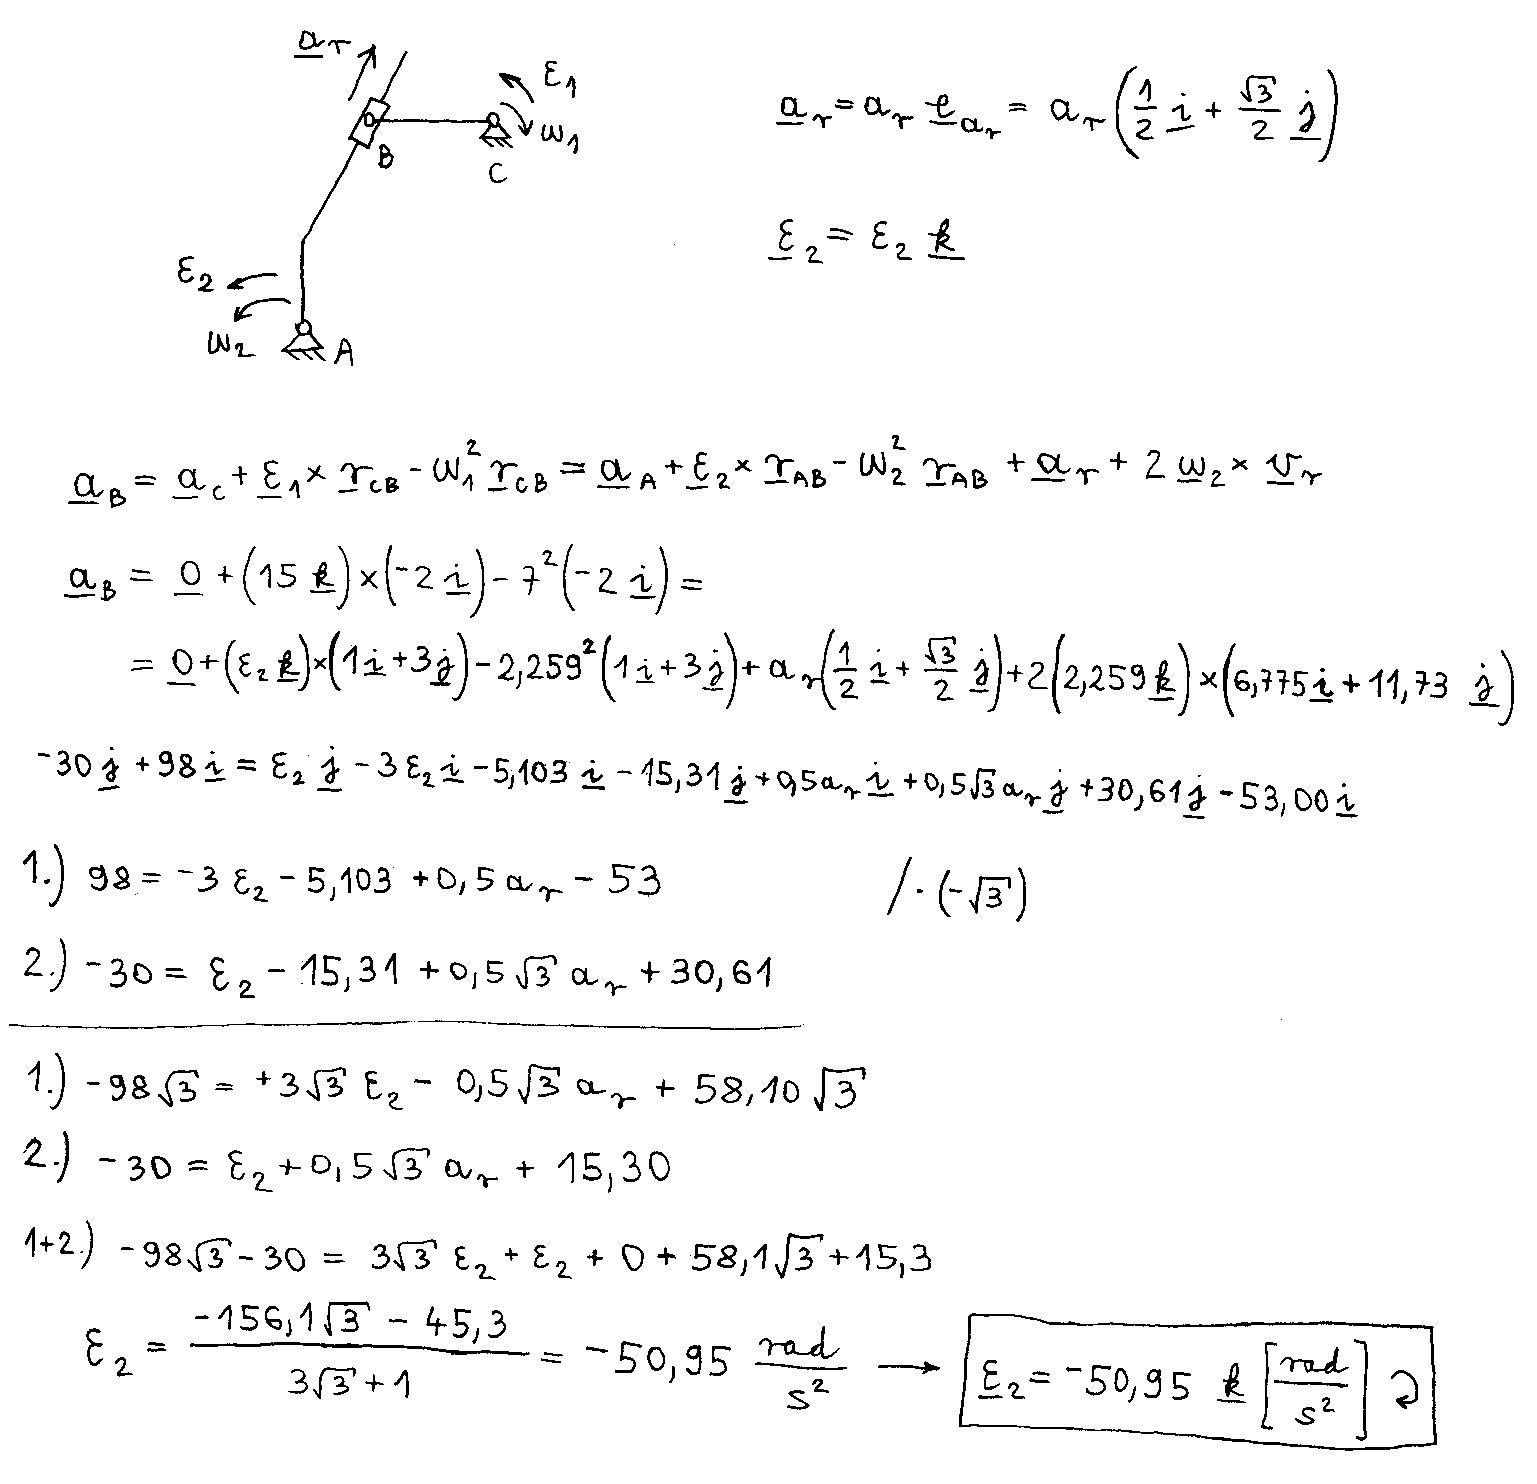 a_r
ε₁
ω₁
B
C
ε₂
ω₂
A
a_r = a_r e_{a_r} = a_r (1/2 i + √3/2 j)
ε₂ = ε₂ k
a_B = a_C + ε₁ × r_CB - ω₁² r_CB = a_A + ε₂ × r_AB - ω₂² r_AB + a_r + 2 ω₂ × v_r
a_B = 0 + (15 k) × (-2 i) - 7² (-2 i) =
= 0 + (ε₂ k) × (1i + 3j) - 2,259² (1i + 3j) + a_r (1/2 i + √3/2 j) + 2 (2,259 k) × (6,775 i + 11,73 j)
-30 j + 98 i = ε₂ j - 3 ε₂ i - 5,103 i - 15,31 j + 0,5 a_r i + 0,5√3 a_r j + 30,61 j - 53,00 i
1.) 98 = -3 ε₂ - 5,103 + 0,5 a_r - 53 /·(-√3)
2.) -30 = ε₂ - 15,31 + 0,5 √3 a_r + 30,61
1.) -98√3 = +3√3 ε₂ - 0,5√3 a_r + 58,10 √3
2.) -30 = ε₂ + 0,5 √3 a_r + 15,30
1+2.) -98√3 - 30 = 3√3 ε₂ + ε₂ + 0 + 58,1√3 + 15,3
ε₂ = (-156,1√3 - 45,3)/(3√3 + 1) = -50,95 rad/s² → ε₂ = -50,95 k [rad/s²] ↻